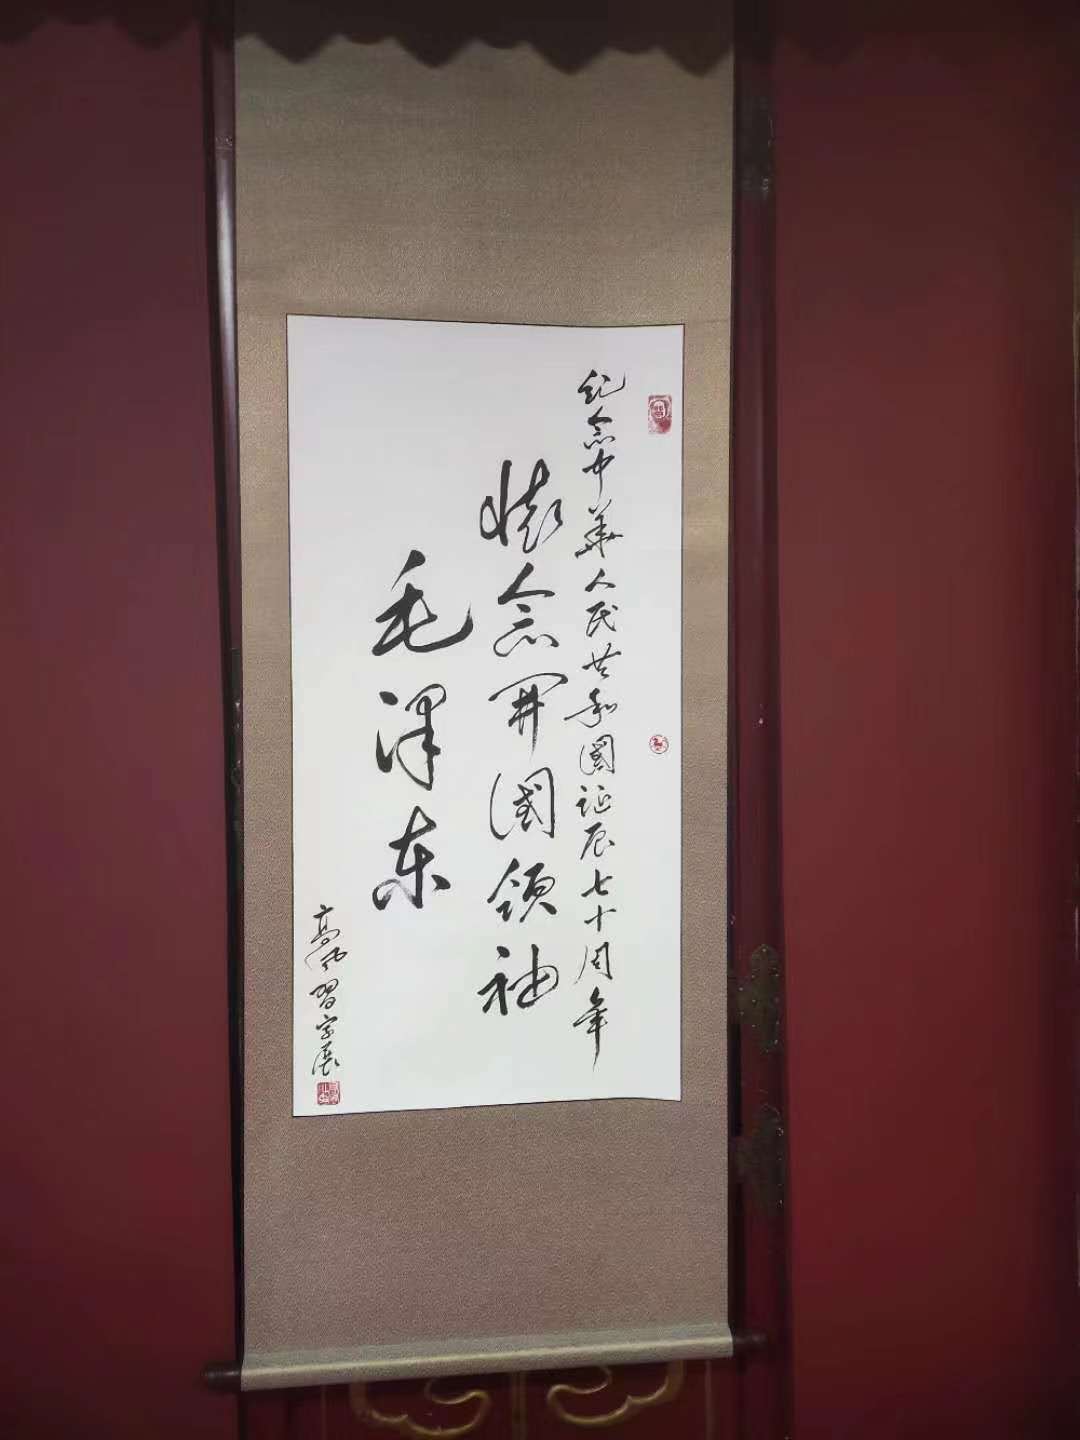 纪念中华人民共和國诞辰七十周年
怀念开國领袖
毛泽东
高风習字展